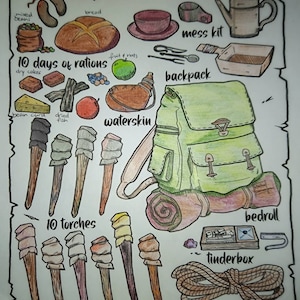 mixed beans
bread
mess kit
10 days of rations
fruit & nuts
dry cakes
backpack
dried fish
waterskin
10 torches
bedroll
tinderbox